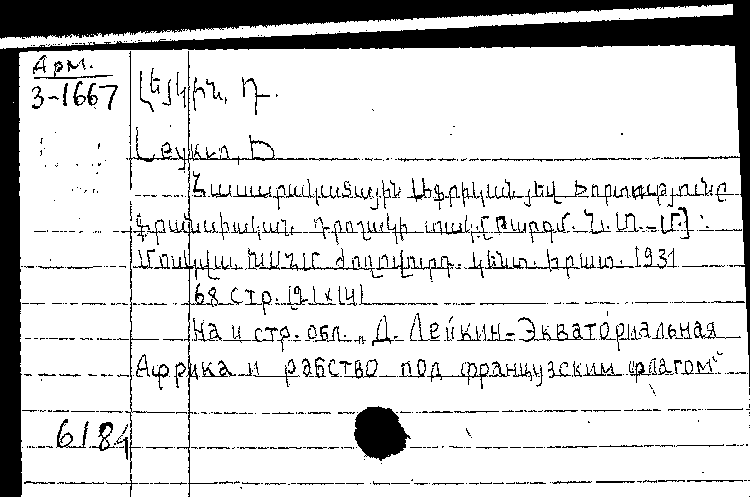 Арм.
3-1667
Լեյկին, Դ.
Հասարակածային Աֆրիկան յեվ ստրկությունը
ֆրանսիական դրոշակի տակ. [Թարգմ.
Մոսկվա. ԽՍՀՄ ժողովուրդ. կենտ. հրատ. 1931
68 стр. (21x14)
На и стр. обл. „Д. Лейкин-Экваториальная
Африка и рабство под французским флагом"
6184